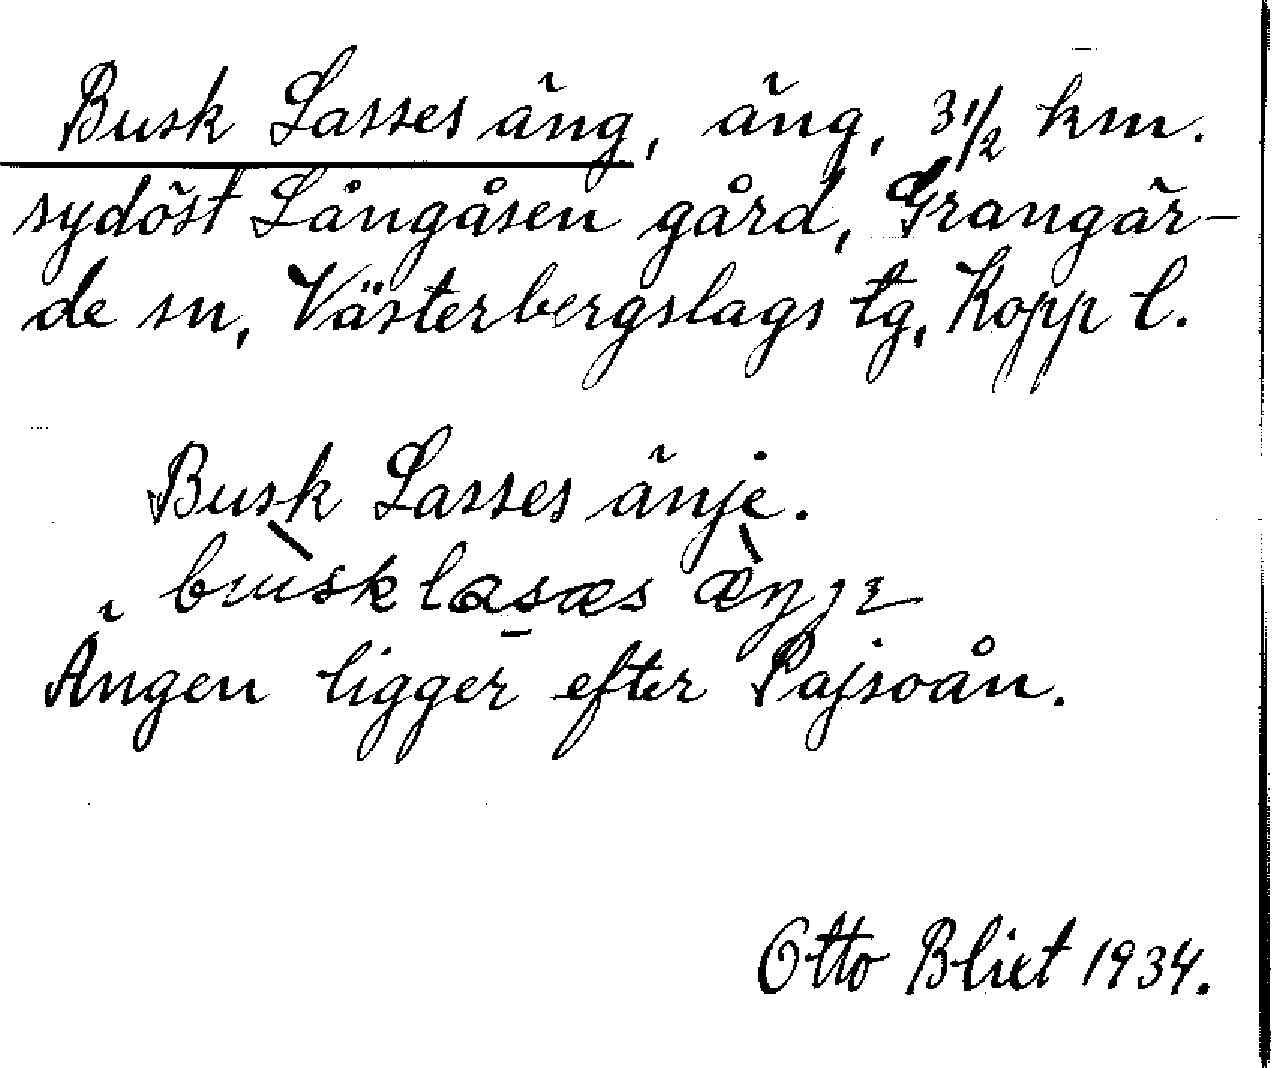 Busk Lasses äng, äng, 3 1/2 km.
sydöst Långåsen gård, Grangär-
de sn, Västerbergslags tg, Kopp l.
Busk Lasses änje.
Ängen ligger efter Pajsoån.
Otto Blixt 1934.